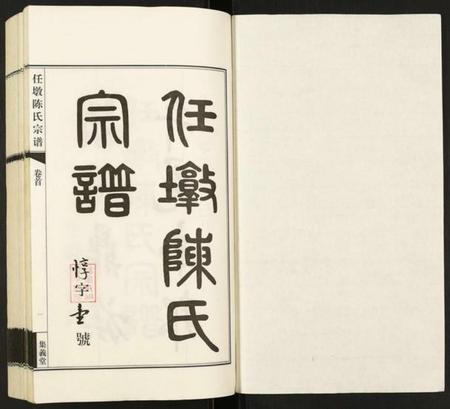 任墩陳氏
宗譜
惇字 號
任墩陈氏宗谱
卷首
一
集義堂